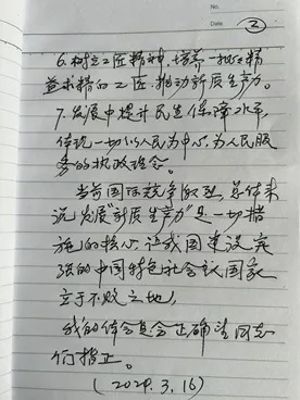 No.
Date ③
6.树立工匠精神,培养一批精
益求精的工匠,推动新质生产力。
7.发展中提升民生保障水平,
体现一切以人民为中心,为人民服
务的执政理念。
当前国际竞争激烈,总体来
说,发展"新质生产力"是一切措
施的核心,让我国建设成
强的中国特色社会主义国家
立于不败之地,
我的体会是否正确请同志
们指正。
(2024.3.16)